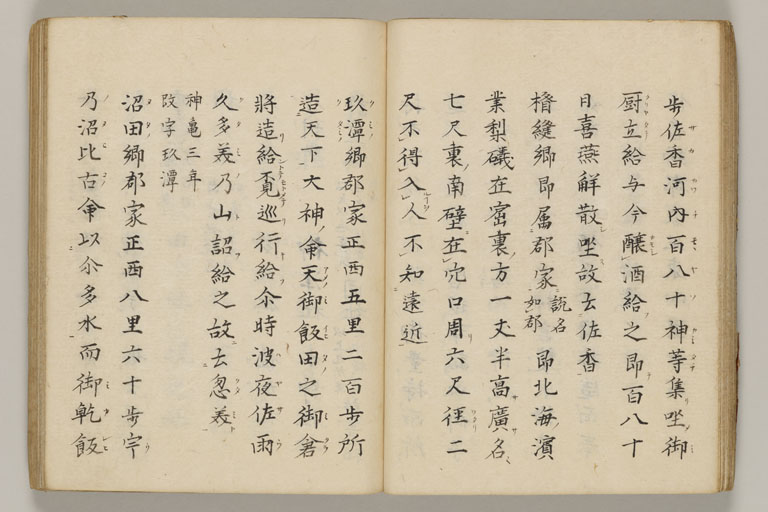 歩佐香河内百八十神等集坐御
厨立給与今醸酒給之即百八十
日喜燕解散坐故云佐香
楯縫郷即属郡家説名如郡即北海濱
業梨礒在窟裏方一丈半高廣各
七尺裏南壁在穴口周六尺径二
尺不得入人不知遠近
玖潭郷郡家正西五里二百歩所
造天下大神命天御飯田之御倉
將造給覓巡行給尒時波夜佐雨
久多美乃山詔給之故云忽美
神亀三年
改字玖潭
沼田郷郡家正西八里六十歩宇
乃沼比古命以尒多水而御乾飯